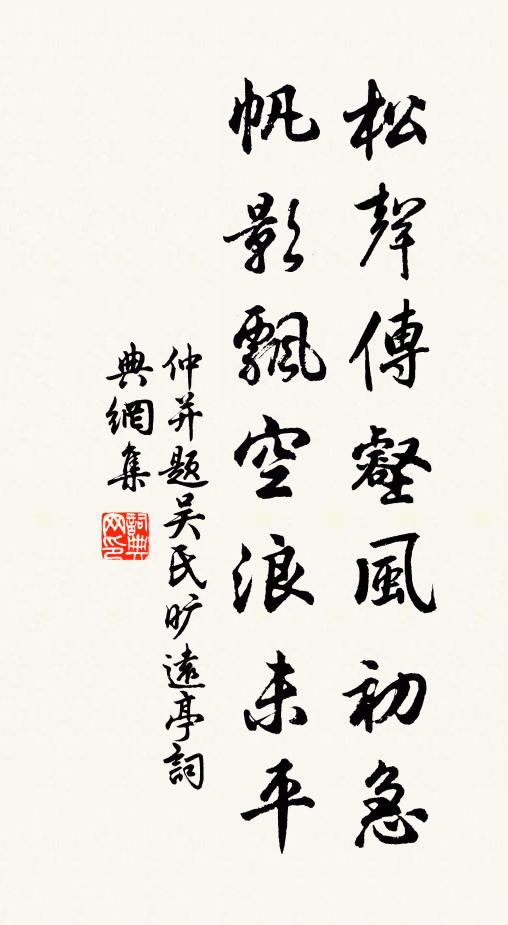 松聲傳壑風初急
帆影飄空浪未平
仲并题吴氏旷遠亭詞
典網集
詞典
网印